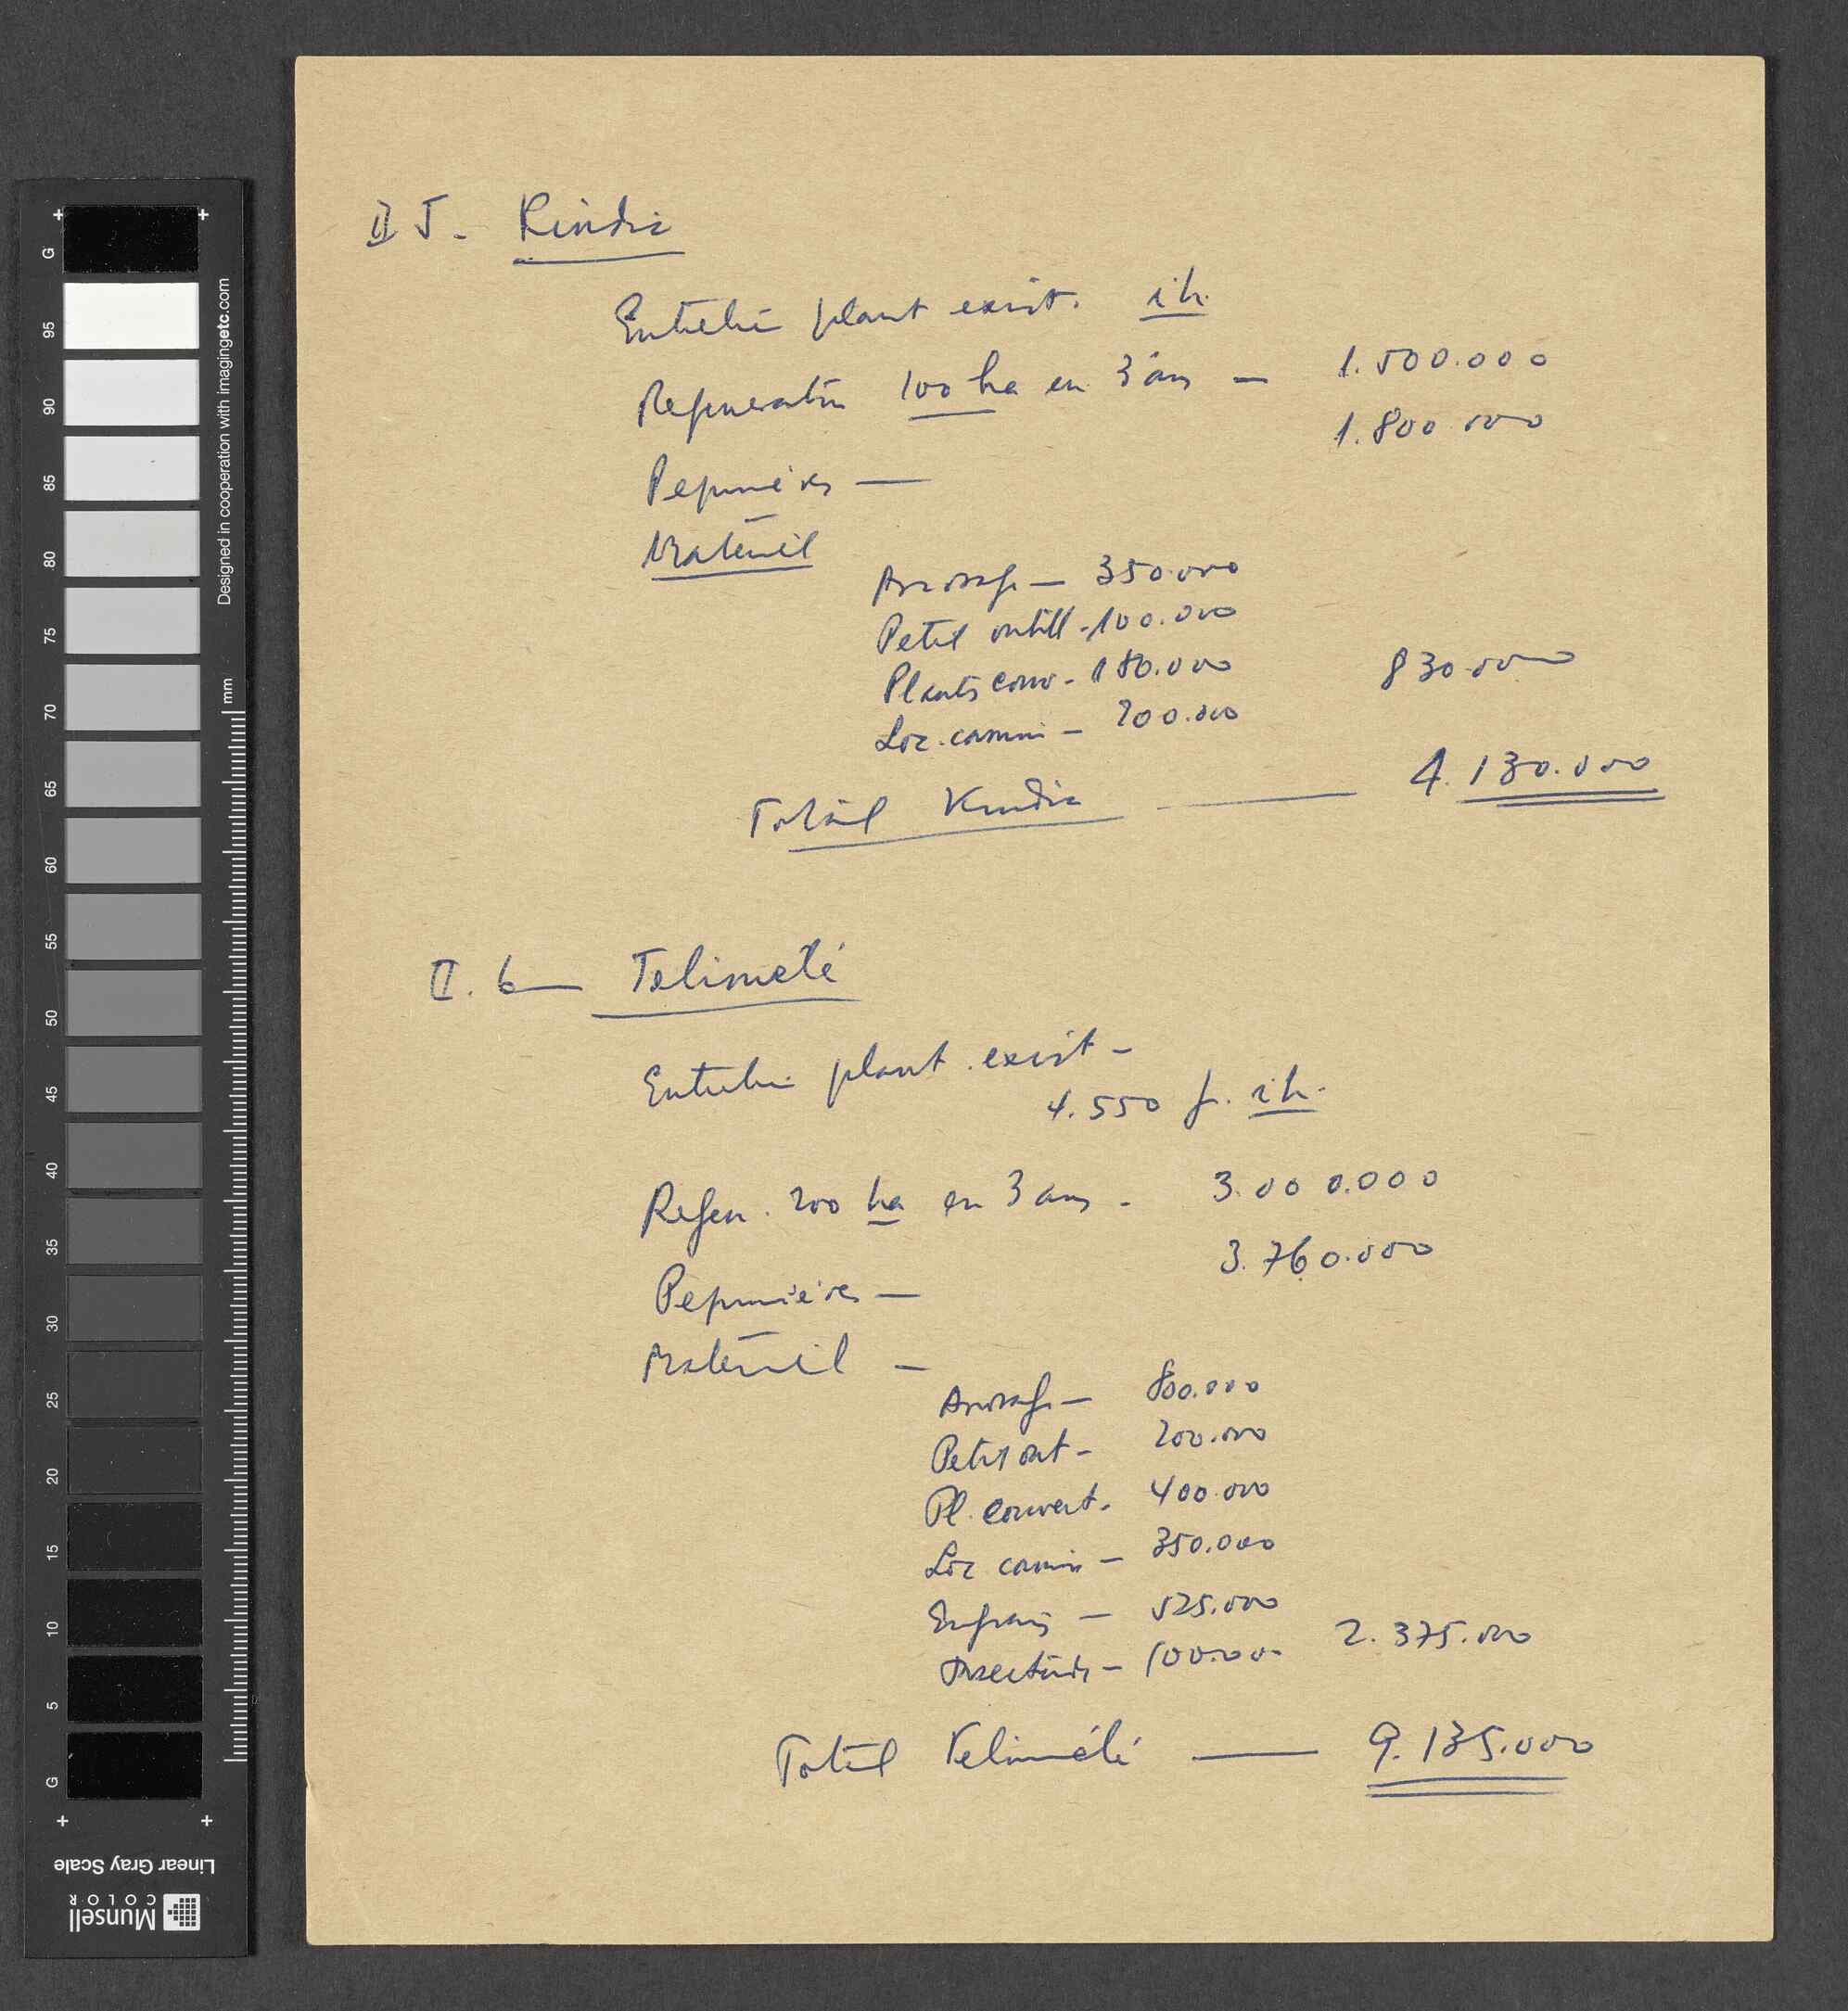 II 5 - Kindia
Entretien plant exist. i.h.
Regeneration 100 ha en 3 ans — 1.500.000
1.800 000
Pepinières —
Matériel
Arrosage — 350.000
Petit outill - 100.000
Plants couv - 180.000
830.000
Loc. camion — 200.000
Total Kindia — 4.130.000
II. 6 — Telimelé
Entretien plant. exist —
4.550 f. i.h.
Regen. 200 ha en 3 ans - 3.000.000
3.760.000
Pepinières —
Matériel —
Arrosage — 800.000
Petit out - 200.000
Pl. couvert. 400.000
Loc camion — 350.000
Engrais — 525.000
Insecticides — 100.000 2.375.000
Total Telimélé — 9.135.000
G 95 90 85 80 75 70 65 60 55 50 45 40 35 30 25 20 15 10 5 G
mm
Designed in cooperation with imagingetc.com
Linear Gray Scale
Munsell
COLOR